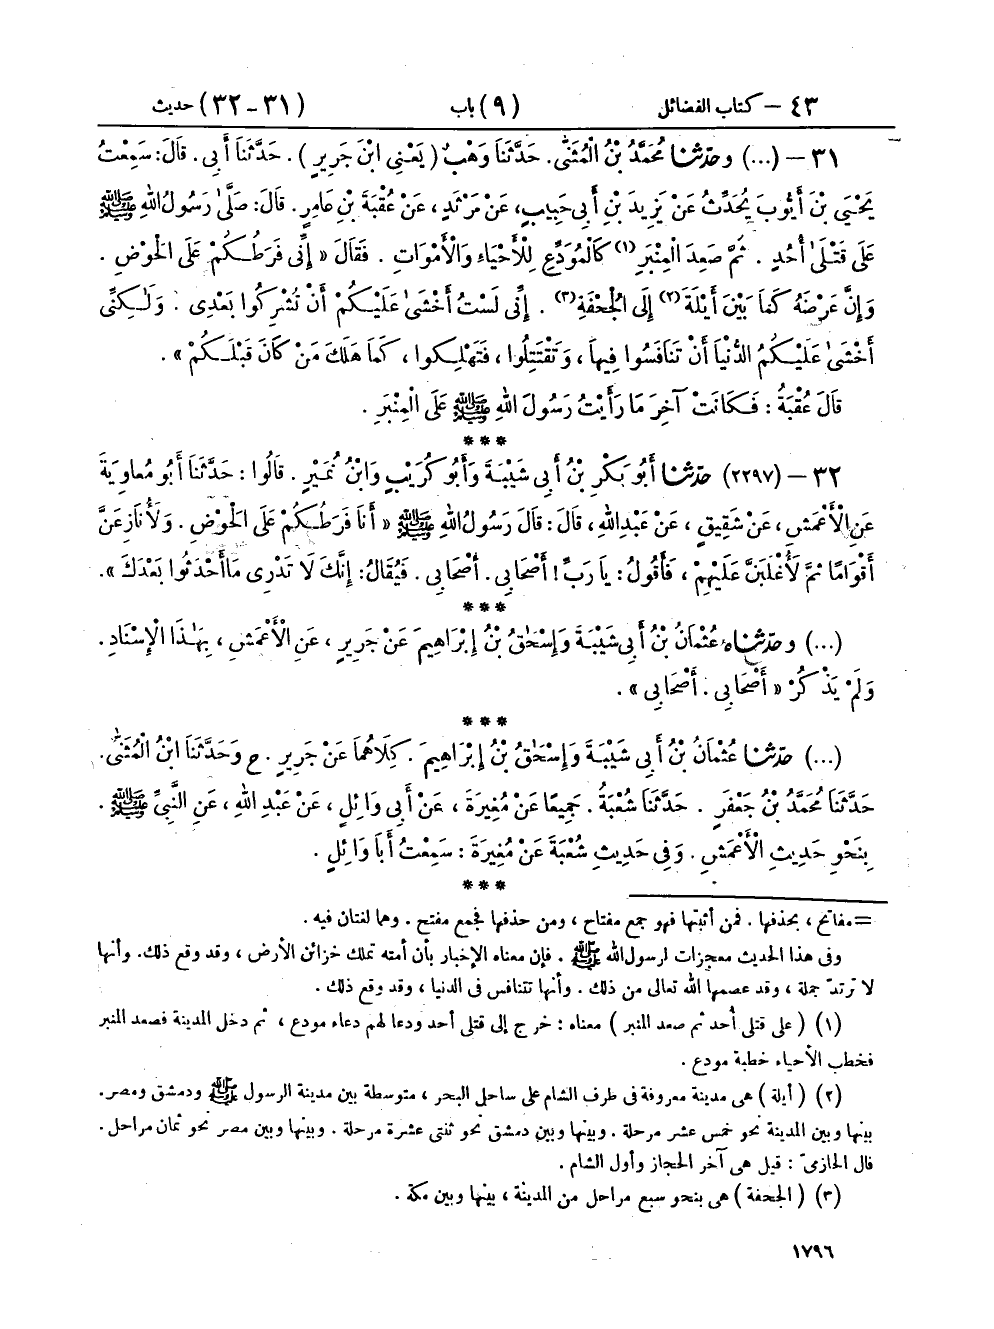 ٤٣ – كتاب الفضائل (٩) باب (٣١ - ٣٢) حديث
٣١ – (...) وحدّثنا مُحَمَّدُ بْنُ الْمُثَنَّى. حَدَّثَنَا وَهْبٌ (يَعْنِي ابْنَ جَرِيرٍ). حَدَّثَنَا أَبِي. قَالَ: سَمِعْتُ
يَحْيَىٰ بْنَ أَيُّوبَ يُحَدِّثُ عَنْ يَزِيدَ بْنِ أَبِي حَبِيبٍ، عَنْ مَرْثَدٍ، عَنْ عُقْبَةَ بْنِ عَامِرٍ. قَالَ: صَلَّىٰ رَسُولُ اللهِ ﷺ
عَلَى قَتْلَىٰ أُحُدٍ. ثُمَّ صَعِدَ الْمِنْبَرَ (١) كَالْمُوَدِّعِ لِلْأَحْيَاءِ وَالْأَمْوَاتِ. فَقَالَ « إِنِّي فَرَطُكُمْ عَلَى الْحَوْضِ.
وَإِنَّ عَرْضَهُ كَمَا بَيْنَ أَيْلَةَ (٢) إِلَى الْجُحْفَةِ (٣). إِنِّي لَسْتُ أَخْشَىٰ عَلَيْكُمْ أَنْ تُشْرِكُوا بَعْدِي. وَلَٰكِنِّي
أَخْشَىٰ عَلَيْكُمُ الدُّنْيَا أَنْ تَنَافَسُوا فِيهَا، وَتَقْتَتِلُوا، فَتَهْلِكُوا، كَمَا هَلَكَ مَنْ كَانَ قَبْلَكُمْ ».
قَالَ عُقْبَةُ: فَكَانَتْ آخِرَ مَا رَأَيْتُ رَسُولَ اللهِ ﷺ عَلَى الْمِنْبَرِ.
***
٣٢ – (٢٢٩٧) حدّثنا أَبُو بَكْرِ بْنُ أَبِي شَيْبَةَ وَأَبُو كُرَيْبٍ وَابْنُ نُمَيْرٍ. قَالُوا: حَدَّثَنَا أَبُو مُعَاوِيَةَ
عَنِ الْأَعْمَشِ، عَنْ شَقِيقٍ، عَنْ عَبْدِ اللهِ، قَالَ: قَالَ رَسُولُ اللهِ ﷺ « أَنَا فَرَطُكُمْ عَلَى الْحَوْضِ. وَلَأُنَازِعَنَّ
أَقْوَامًا ثُمَّ لَأُغْلَبَنَّ عَلَيْهِمْ، فَأَقُولُ: يَا رَبِّ! أَصْحَابِي. أَصْحَابِي. فَيُقَالُ: إِنَّكَ لَا تَدْرِي مَا أَحْدَثُوا بَعْدَكَ ».
***
(...) وحدّثناه عُثْمَانُ بْنُ أَبِي شَيْبَةَ وَإِسْحَٰقُ بْنُ إِبْرَاهِيمَ عَنْ جَرِيرٍ، عَنِ الْأَعْمَشِ، بِهَٰذَا الْإِسْنَادِ.
وَلَمْ يَذْكُرْ « أَصْحَابِي. أَصْحَابِي ».
***
(...) حدّثنا عُثْمَانُ بْنُ أَبِي شَيْبَةَ وَإِسْحَٰقُ بْنُ إِبْرَاهِيمَ. كِلَاهُمَا عَنْ جَرِيرٍ. ح وَحَدَّثَنَا ابْنُ الْمُثَنَّىٰ.
حَدَّثَنَا مُحَمَّدُ بْنُ جَعْفَرٍ. حَدَّثَنَا شُعْبَةُ. جَمِيعًا عَنْ مُغِيرَةَ، عَنْ أَبِي وَائِلٍ، عَنْ عَبْدِ اللهِ، عَنِ النَّبِيِّ ﷺ.
بِنَحْوِ حَدِيثِ الْأَعْمَشِ. وَفِي حَدِيثِ شُعْبَةَ عَنْ مُغِيرَةَ: سَمِعْتُ أَبَا وَائِلٍ.
***
= مفاتح، بحذفها. فمن أثبتها فهو جمع مفتاح، ومن حذفها فجمع مفتح. وهما لغتان فيه.
وفى هذا الحديث معجزات لرسول الله ﷺ. فإن معناه الإخبار بأن أمته تملك خزائن الأرض، وقد وقع ذلك. وأنها
لا ترتدّ جملة، وقد عصمها الله تعالى من ذلك. وأنها تتنافس فى الدنيا، وقد وقع ذلك.
(١) (على قتلى أحد ثم صعد المنبر) معناه: خرج إلى قتلى أحد ودعا لهم دعاء مودع، ثم دخل المدينة فصعد المنبر
فخطب الأحياء خطبة مودع.
(٢) (أيلة) هى مدينة معروفة فى طرف الشام على ساحل البحر، متوسطة بين مدينة الرسول ﷺ ودمشق ومصر.
بينها وبين المدينة نحو خمس عشر مرحلة. وبينها وبين دمشق نحو ثنتى عشرة مرحلة. وبينها وبين مصر نحو ثمان مراحل.
قال الحازمىّ: قيل هى آخر الحجاز وأول الشام.
(٣) (الجحفة) هى بنحو سبع مراحل من المدينة، بينها وبين مكة.
١٧٩٦